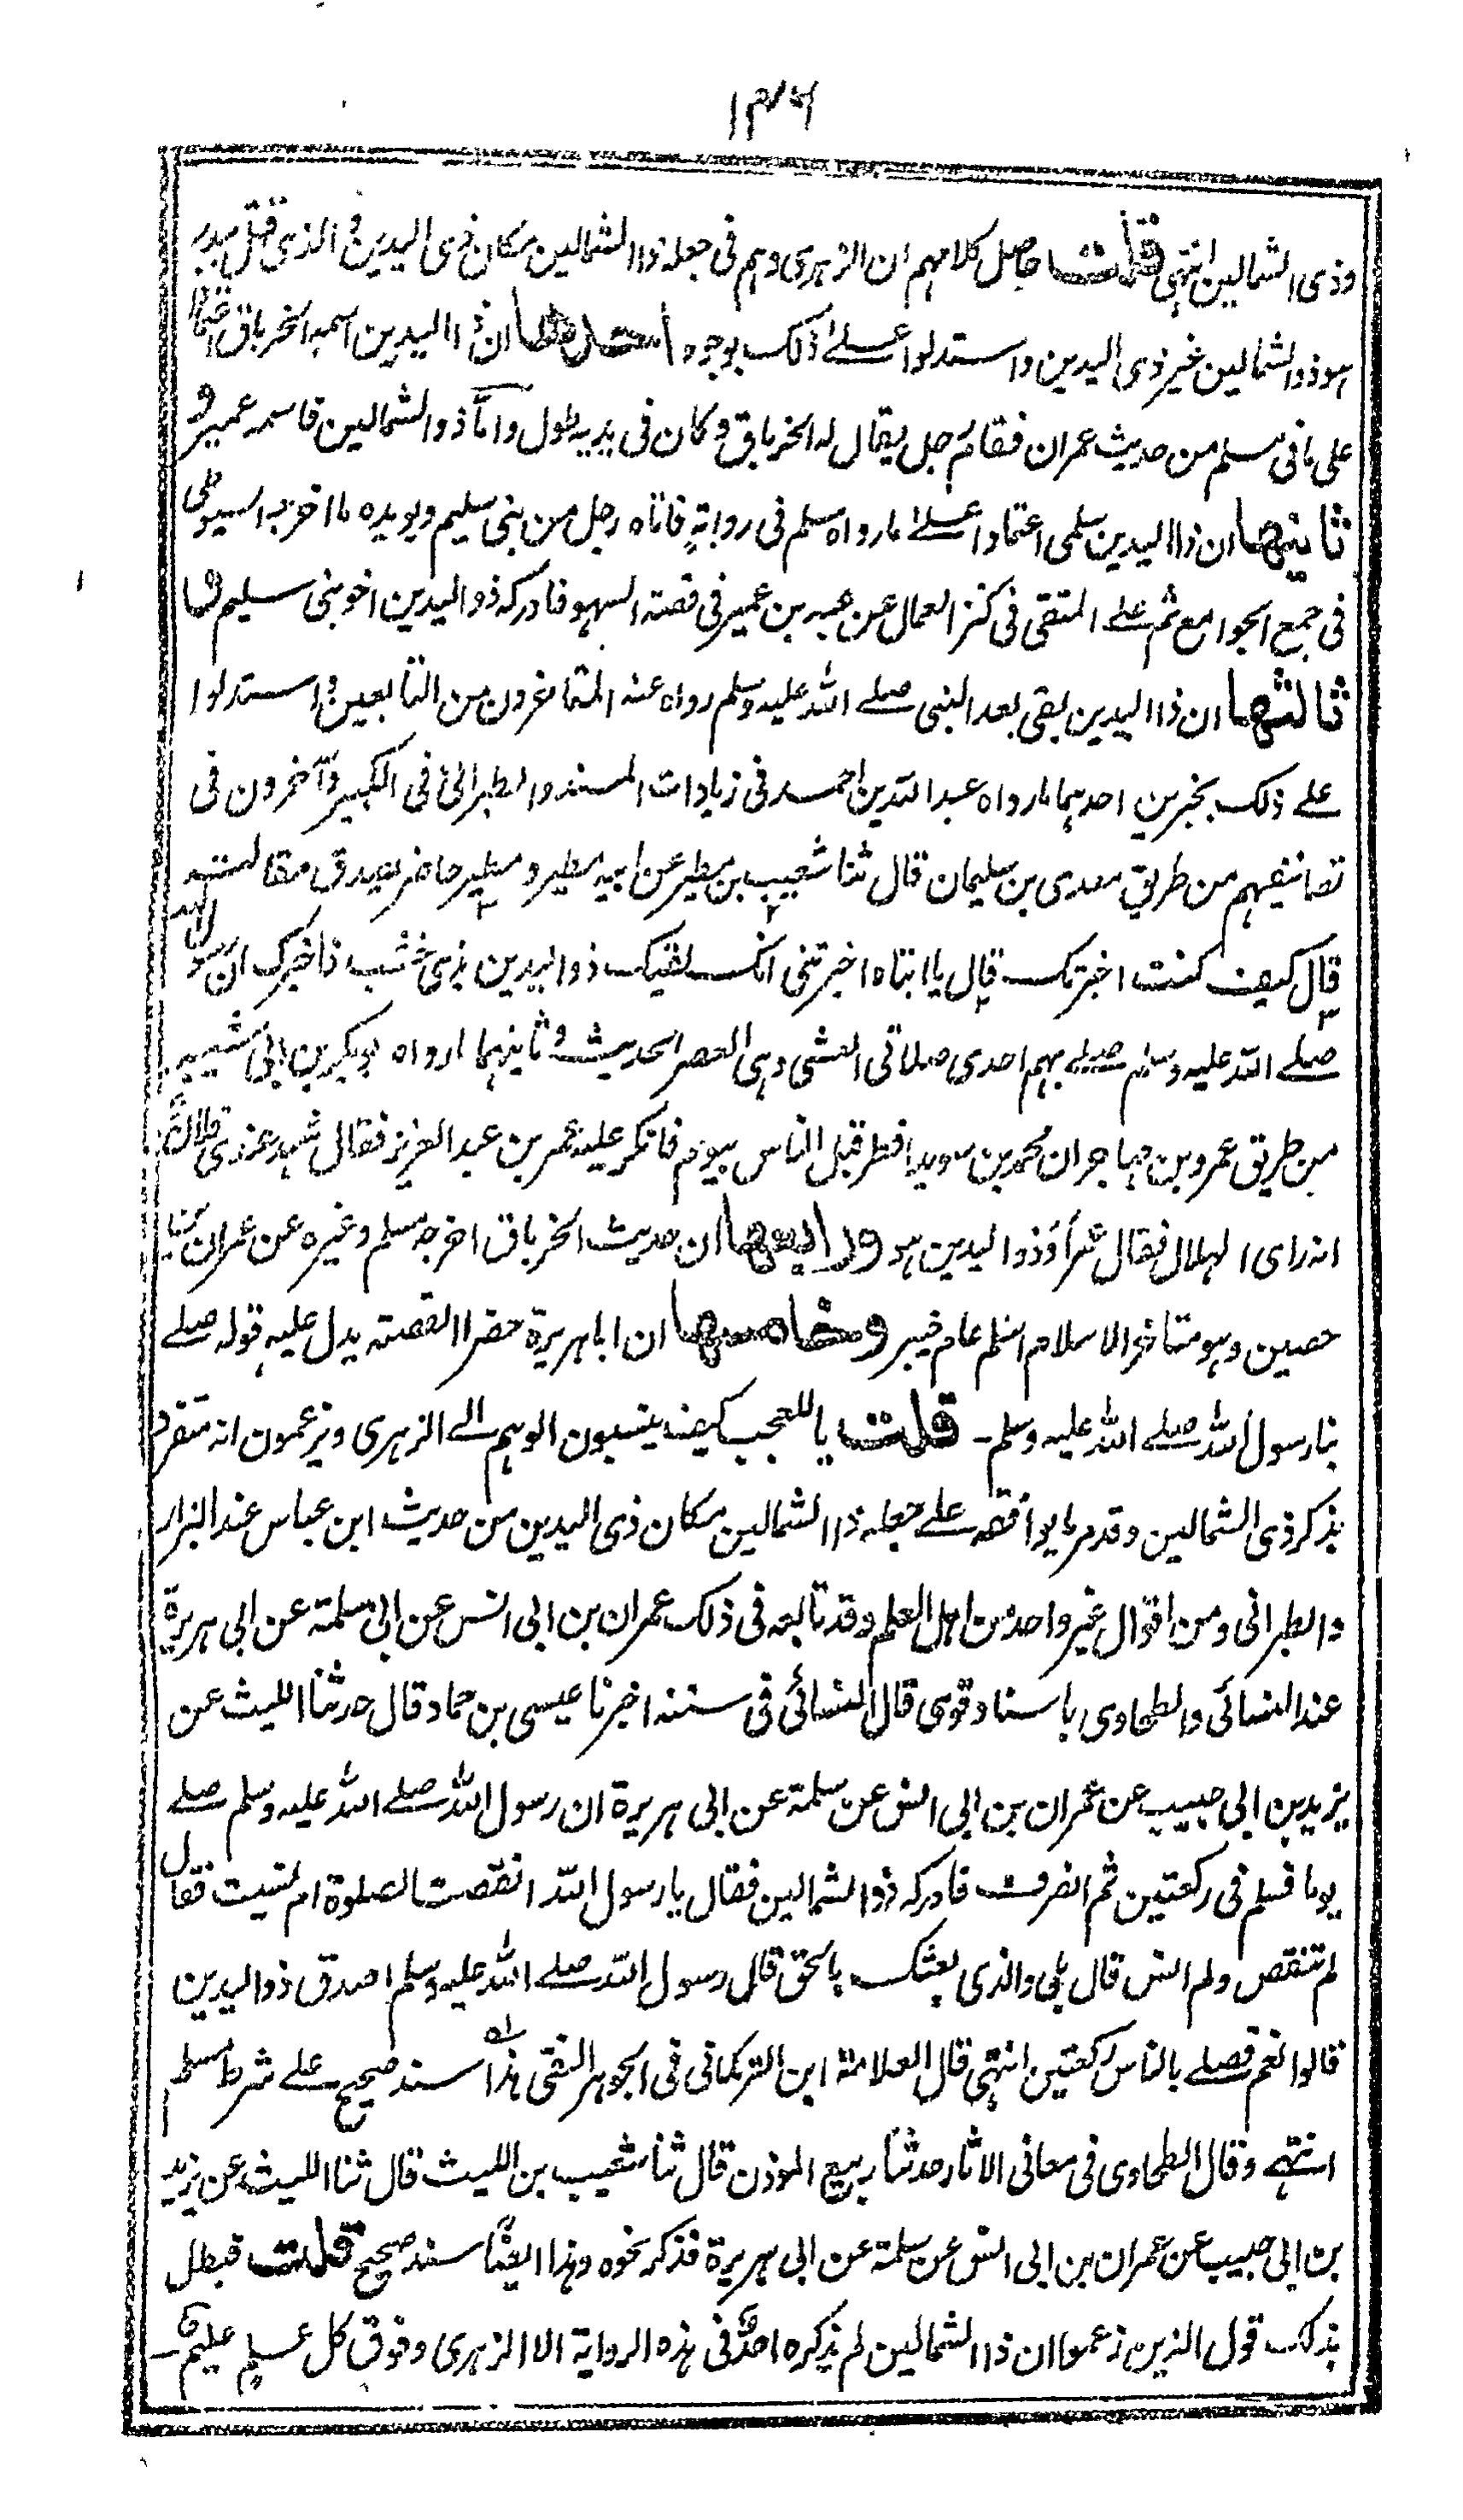 ١٤٦
وذى الشمالين انتهى قلت حاصل كلامهم ان الزهرى وهم فى جعله ذا الشمالين مكان ذى اليدين والذى قتل ببدر
هو ذو الشمالين غير ذى اليدين واستدلوا على ذلك بوجوه احدها ان ذا اليدين اسمه الخرباق اعتمادا
على ما فى مسلم من حديث عمران فقام رجل يقال له الخرباق وكان فى يديه طول واما ذو الشمالين فاسمه عمير و
ثانيها ان ذا اليدين سلمى اعتمادا على ما رواه مسلم فى رواية فاتاه رجل من بنى سليم ويويده ما اخرجه السيوطى
فى جمع الجوامع ثم على المتقى فى كنز العمال عن عبيد بن عمير فى قصة السهو فادركه ذو اليدين اخو بنى سليم و
ثالثها ان ذا اليدين بقى بعد النبى صلى الله عليه وسلم رواه عنه المتاخرون من التابعين واستدلوا
على ذلك بخبرين احدهما ما رواه عبد الله بن احمد فى زيادات المسند والطبرانى فى الكبير وآخرون فى
تصانيفهم من طريق معدى بن سليمان قال ثنا شعيب بن مطير عن ابيه مطير ومطير حاضر يصدق مقالته
قال كيف كنت اخبرتك قال يا ابتاه اخبرتنى انك لقيك ذو اليدين بذى خشب فاخبرك ان رسول الله
صلى الله عليه وسلم صلى بهم احدى صلاتى العشى وهى العصر الحديث وثانيهما ما رواه ابوبكر بن ابى شيبه
من طريق عمرو بن مهاجر ان محمد بن سويد افطر قبل الناس بيوم فانكر عليه عمر بن عبد العزيز فقال شهد عندى فلان
انه راى الهلال فقال عمر أوذو اليدين هو ورابعها ان حديث الخرباق اخرجه مسلم وغيره عن عمران بن
حصين وهو متاخر الاسلام اسلم عام خيبر وخامسها ان ابا هريرة حضر القصة يدل عليه قوله صلى
بنا رسول الله صلى الله عليه وسلم - قلت يا للعجب كيف ينسبون الوهم الى الزهرى ويزعمون انه متفرد
بذكر ذى الشمالين وقد مر ما يوافقه على جعله ذا الشمالين مكان ذى اليدين من حديث ابن عباس عند البزار
والطبرانى ومن اقوال غير واحد من اهل العلم وقد تابعه فى ذلك عمران بن ابى انس عن ابى سلمة عن ابى هريرة
عند النسائى والطحاوى باسناد قوى قال النسائى فى سننه اخبرنا عيسى بن حماد قال حدثنا الليث عن
يزيد بن ابى حبيب عن عمران بن ابى انس عن سلمة عن ابى هريرة ان رسول الله صلى الله عليه وسلم صلى
يوما فسلم فى ركعتين ثم انصرف فادركه ذو الشمالين فقال يا رسول الله انقصت الصلوة ام نسيت فقال
لم تنقص ولم انس قال بلى والذى بعثك بالحق قال رسول الله صلى الله عليه وسلم اصدق ذو اليدين
قالوا نعم فصلى بالناس ركعتين انتهى قال العلامة ابن التركمانى فى الجوهر النقى هذا سند صحيح على شرط مسلم
انتهى وقال الطحاوى فى معانى الاثار حدثنا ربيع الموذن قال ثنا شعيب بن الليث قال ثنا الليث عن يزيد
بن ابى حبيب عن عمران بن ابى انس عن سلمة عن ابى هريرة فذكر نحوه وهذا ايضًا سند صحيح قلت فبطل
بذلك قول الذين زعموا ان ذا الشمالين لم يذكره احد فى هذه الرواية الا الزهرى وفوق كل علم عليم -